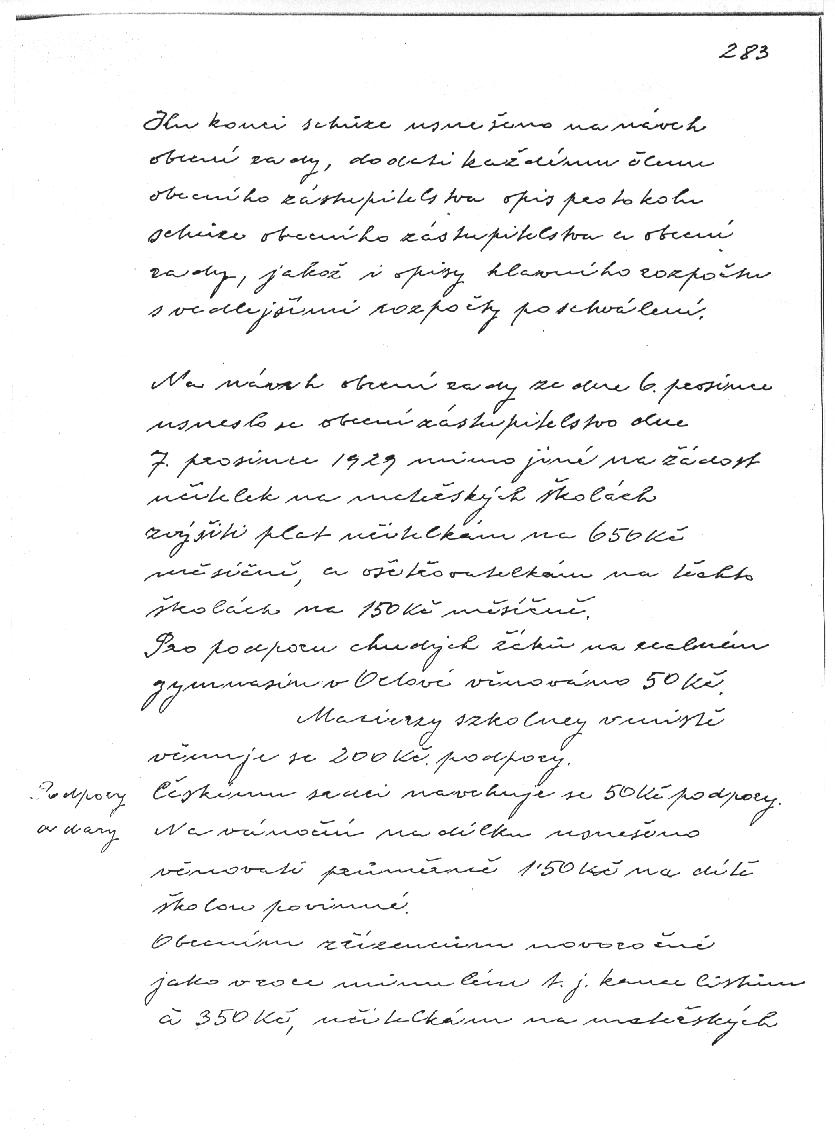 283
Ku konci schůze usnešeno na návrh
obecní rady, dodati každému členu
obecního zástupitelstva opis protokolu
schůze obecního zástupitelstva a obecní
rady, jakož i opisy hlavního rozpočtu
s vedlejšími rozpočty po schválení.
Na návrh obecní rady ze dne 6. prosince
usneslo se obecní zástupitelstvo dne
7. prosince 1929 mimo jiné na žádost
učitelek na mateřských školách
zvýšiti plat učitelkám na 650 Kč
měsíčně, a ošetřovatelkám na těchto
školách na 150 Kč měsíčně.
Pro podporu chudých žáků na realném
gymnasiu v Orlové věnováno 50 Kč.
Macierzy szkolney v místě
věnuje se 200 Kč. podpory.
Podpory
a dary
Českému srdci navrhuje se 50 Kč podpory.
Na vánoční nadílku usnešeno
věnovati průměrně 1'50 Kč na dítě
školou povinné.
Obecním zřízencům novoročné
jako v roce minulém t. j.
à 350 Kč, učitelkám na mateřských